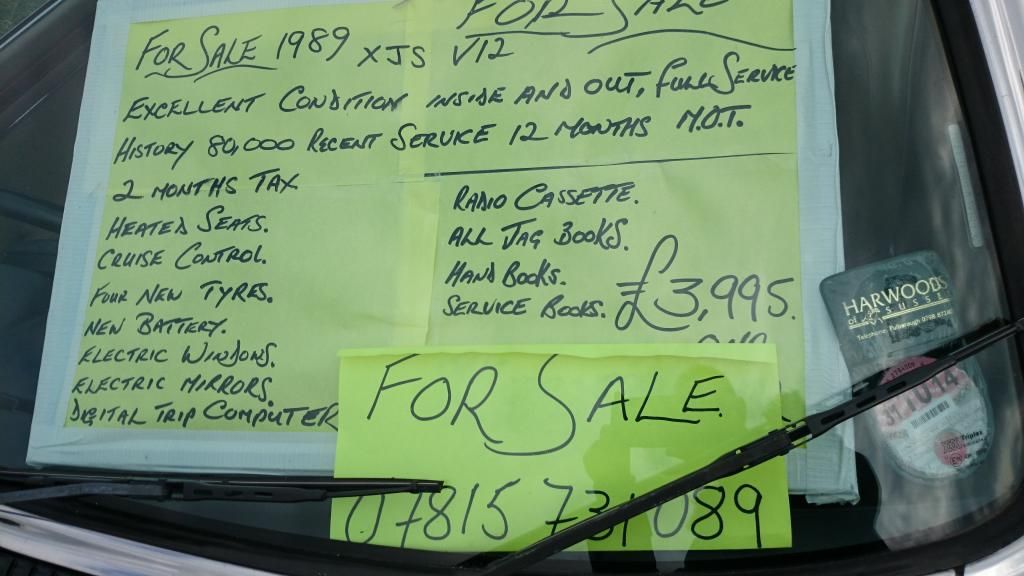 FOR SALE
FOR SALE 1989 XJS V12
EXCELLENT CONDITION INSIDE AND OUT, FULL SERVICE
HISTORY 80,000 RECENT SERVICE 12 MONTHS M.O.T.
2 MONTHS TAX
HEATED SEATS.
CRUISE CONTROL.
FOUR NEW TYRES.
NEW BATTERY.
ELECTRIC WINDOWS.
ELECTRIC MIRRORS.
DIGITAL TRIP COMPUTER
RADIO CASSETTE.
ALL JAG BOOKS.
HAND BOOKS.
SERVICE BOOKS.
£3,995.
FOR SALE.
07815 731089
HARWOODS
OF SUSSEX
Telephone: Pulborough
Triplex